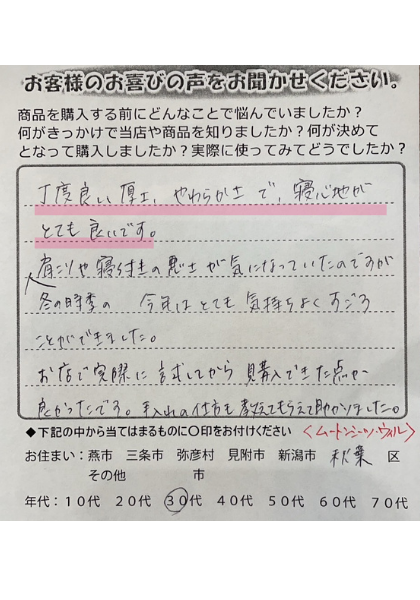 お客様のお喜びの声をお聞かせください。
商品を購入する前にどんなことで悩んでいましたか？
何がきっかけで当店や商品を知りましたか？何が決めて
となって購入しましたか？実際に使ってみてどうでしたか？
丁度良い厚さ、やわらかさで、寝心地が
とても良いです。
肩こりや寝付きの悪さが気になっていたのですが
冬の時季の 今年はとても気持ちよくすごす
ことができました。
お店で実際に試してから購入できた点が
良かったです。手入れの仕方も教えてもらえて助かりました。
◆下記の中から当てはまるものに○印をお付けください 〈ムートンシーツ・ウィル〉
お住まい：燕市 三条市 弥彦村 見附市 新潟市 秋葉 区
その他 市
年代：１０代 ２０代 ３０代 ４０代 ５０代 ６０代 ７０代